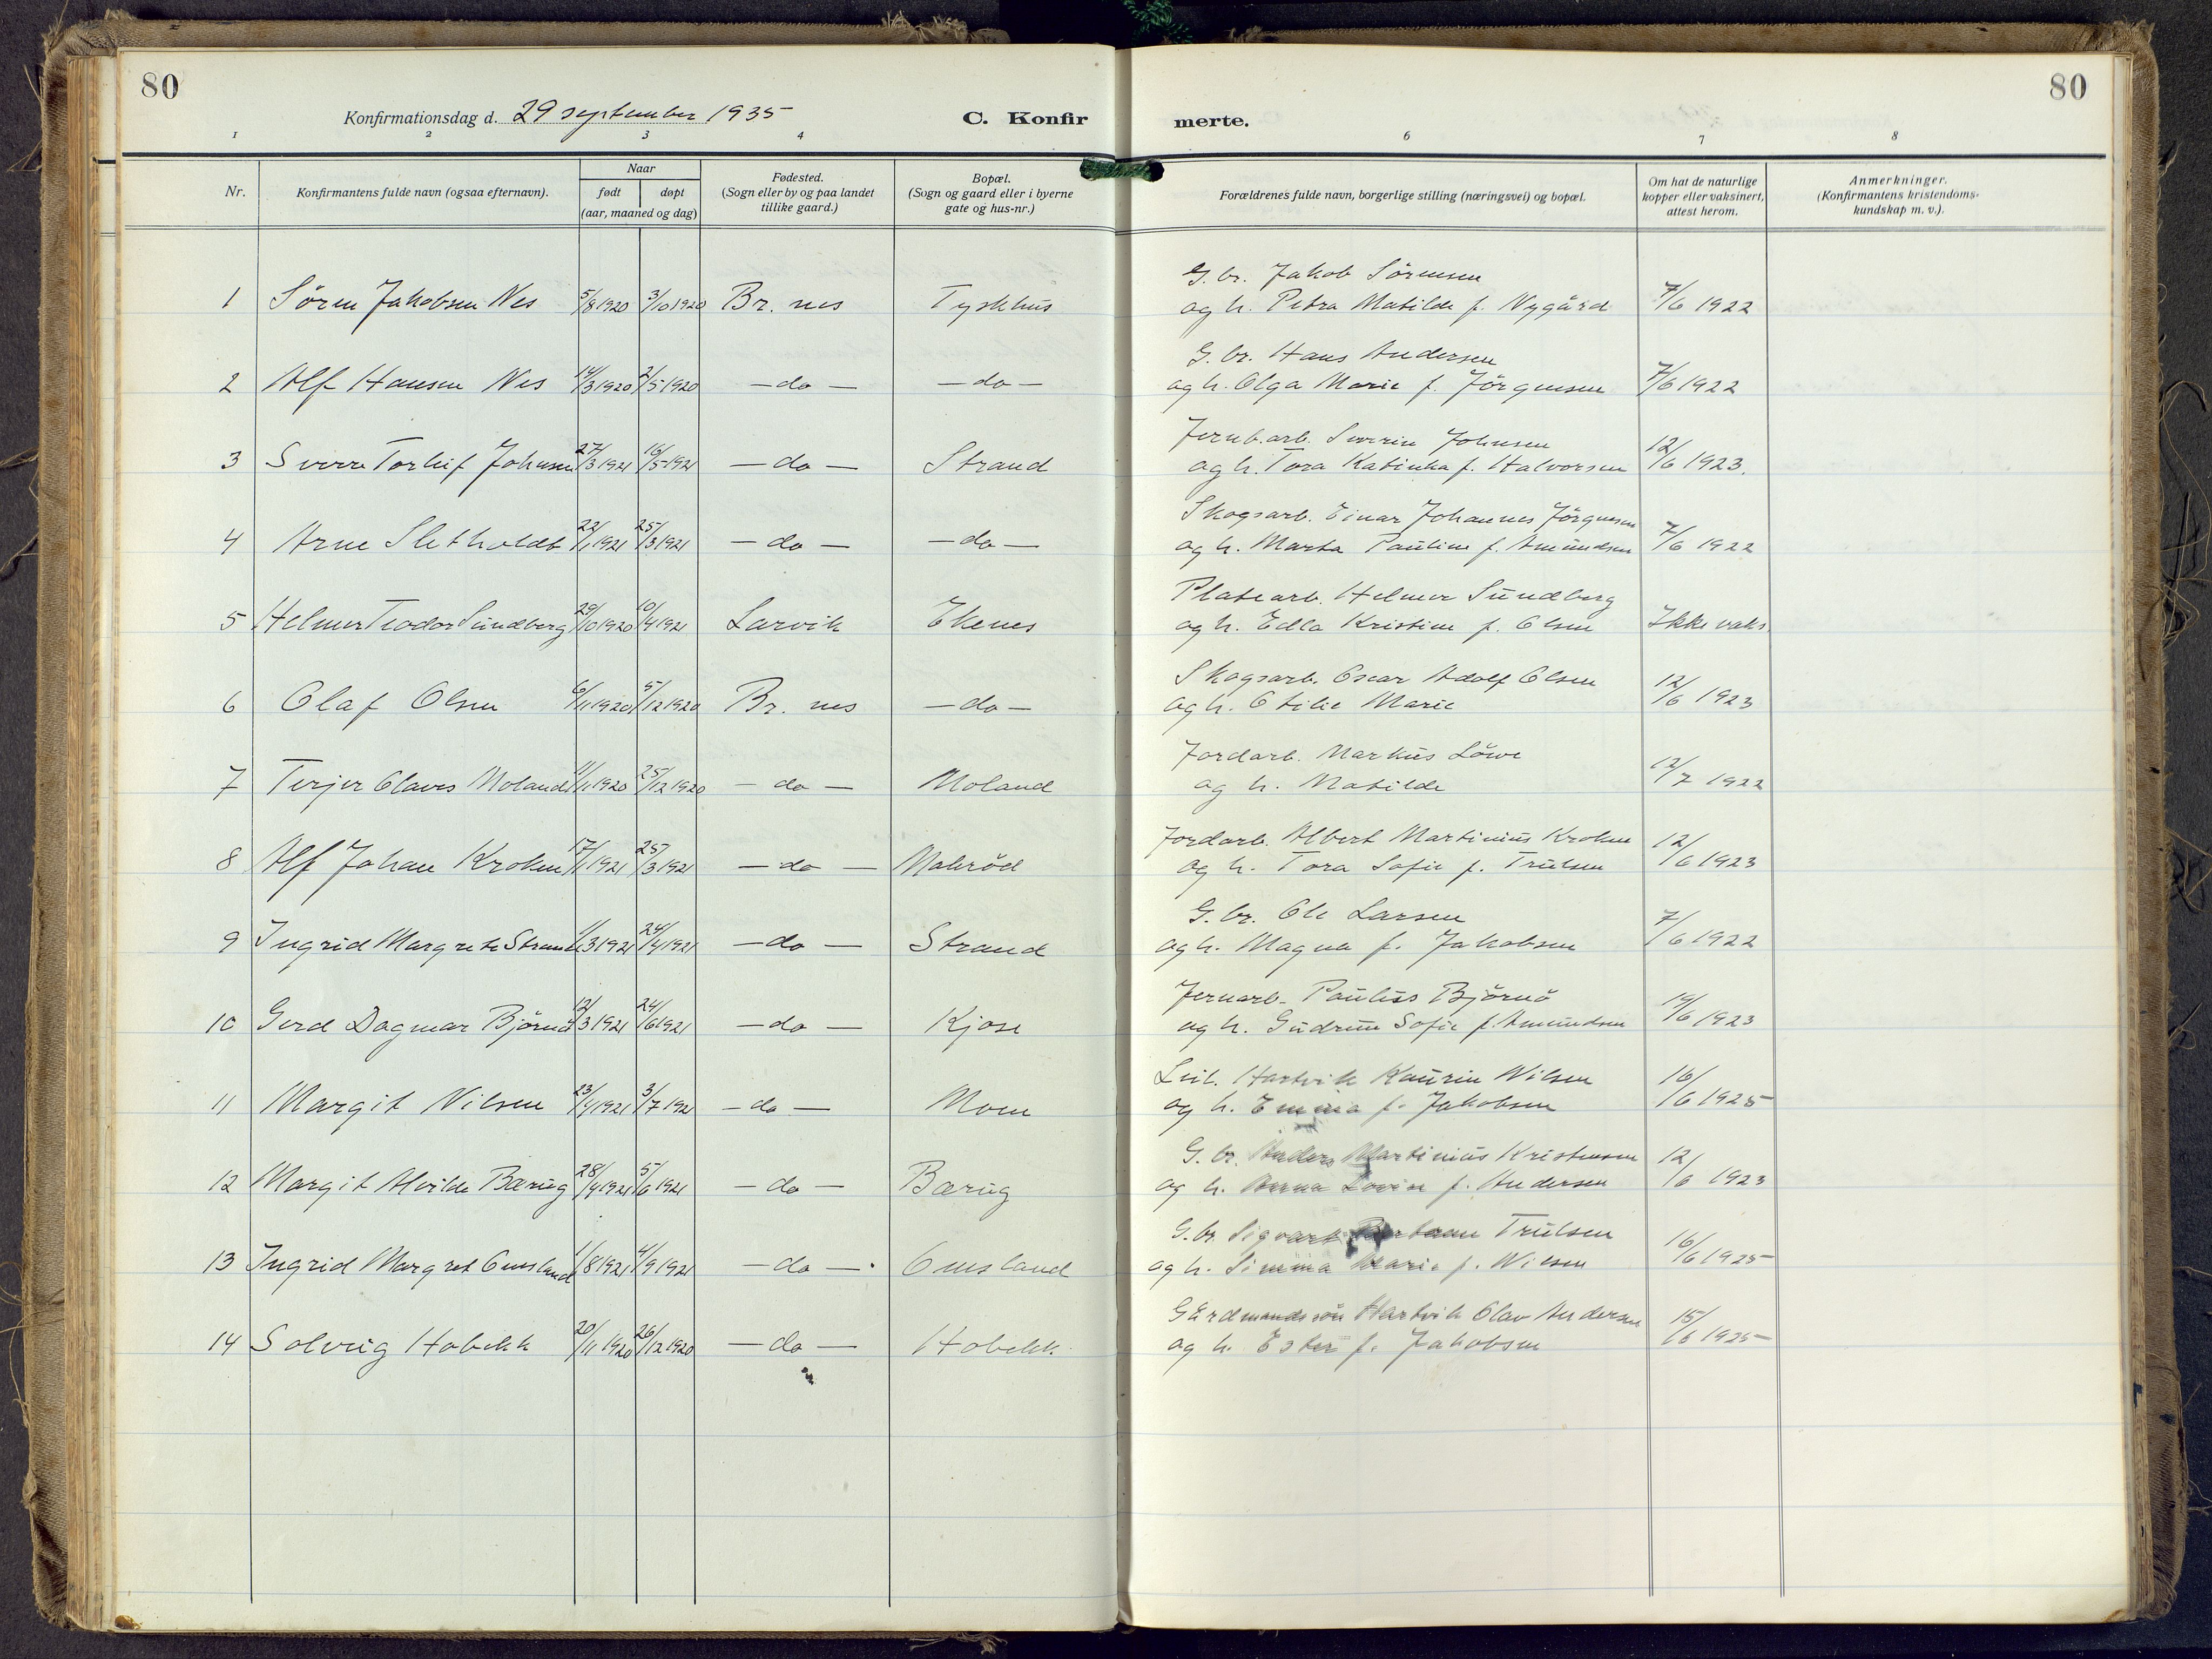 80
80
Konfirmationsdag d. 29 september 1935
C. Konfir
merte.
1 2 3 4 6 7 8
Nr.
Konfirmantens fulde navn (ogsaa efternavn).
Naar
født døpt
(aar, maaned og dag)
Fødested.
(Sogn eller by og paa landet
tillike gaard.)
Bopæl.
(Sogn og gaard eller i byerne
gate og hus-nr.)
Forældrenes fulde navn, borgerlige stilling (næringsvei) og bopæl.
Om hat de naturlige
kopper eller vaksinert,
attest herom.
Anmerkninger.
(Konfirmantens kristendoms-
kundskap m. v.).
G. br. Jakob Sörensen
1 Sören Jakobsen Nes 5/8 1920 3/10 1920 Br. nes Tyskhus og h. Petra Matilde f. Nygård 7/6 1922
G. br. Hans Andersen
2 Alf Hansen Nes 14/3 1920 2/5 1920 – do – – do – og h. Olga Marie f. Jörgensen 7/6 1922
Jernb.arb. Severin Johnsen
3 Sverre Torleif Johnsen 27/3 1921 16/5 1921 – do – Strand og h. Tora Katinka f. Halvorsen 12/6 1923.
Skogsarb. Einar Johannes Jörgensen
4 Arne Sletholdt 22/1 1921 25/3 1921 – do – – do – og h. Marta Pauline f. Amundsen 7/6 1922
Platearb. Helmer Sundberg
5 Helmer Teodor Sundberg 29/10 1920 10/4 1921 Larvik Ekenes og h. Edla Kristine f. Olsen Ikke vaks.
Skogsarb. Oscar Adolf Olsen
6 Olaf Olsen 6/11 1920 5/12 1920 Br. nes – do – og h. Otilie Marie 12/6 1923
Jordarb. Markus Löwe
7 Terjer Olaves Moland 11/11 1920 25/12 1920 – do – Moland og h. Matilde 12/7 1922
Jordarb. Albert Martinius Kroken
8 Alf Johan Kroken 17/1 1921 25/3 1921 – do – Makröd og h. Tora Sofie f. Trulsen 12/6 1923
G. br. Ole Larsen
9 Ingrid Margrete Strand 1/3 1921 24/4 1921 – do – Strand og h. Magna f. Jakobsen 7/6 1922
Jernarb. Paulus Björnö
10 Gerd Dagmar Björnö 12/3 1921 24/6 1921 – do – Kjose og h. Gudrun Sofie f. Amundsen 14/6 1923
Leil. Hartvik Kaurin Nilsen
11 Margit Nilsen 23/4 1921 3/7 1921 – do – Moen og h. Emma f. Jakobsen 16/6 1925
G. br. Anders Martinius Kristensen
12 Margit Alvilde Bærug 28/4 1921 5/6 1921 – do – Bærug og h. Anna Lovise f. Andersen 12/6 1923
G. br. Sigvart Trulsen
13 Ingrid Margret Omsland 1/8 1921 4/9 1921 – do – Omsland og h. Simma Marie f. Nilsen 16/6 1925
Gårdmandssön Hartvik Olav Andersen
14 Solveig Hobekk 20/11 1920 26/12 1920 – do – Hobekk og h. Ester f. Jakobsen 15/6 1925